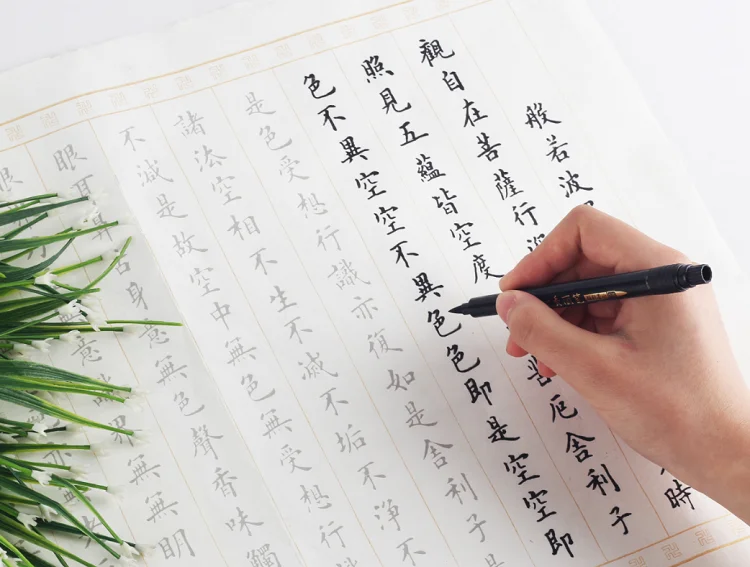 般若波
觀自在菩薩行深 時
照見五蘊皆空度 苦厄舍利子
色不異空空不異色色即是空空即
是色受想行識亦復如是舍利子是
諸法空相不生不滅不垢不淨不
不減是故空中無色無受想行
眼耳鼻舌身意無色聲香味觸
眼 意 界無無明